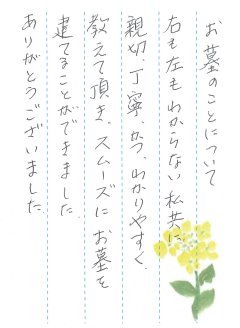 お墓のことについて
右も左もわからない私共に
親切、丁寧、かつ、わかりやすく、
教えて頂き、スムーズにお墓を
建てることができました。
ありがとうございました。